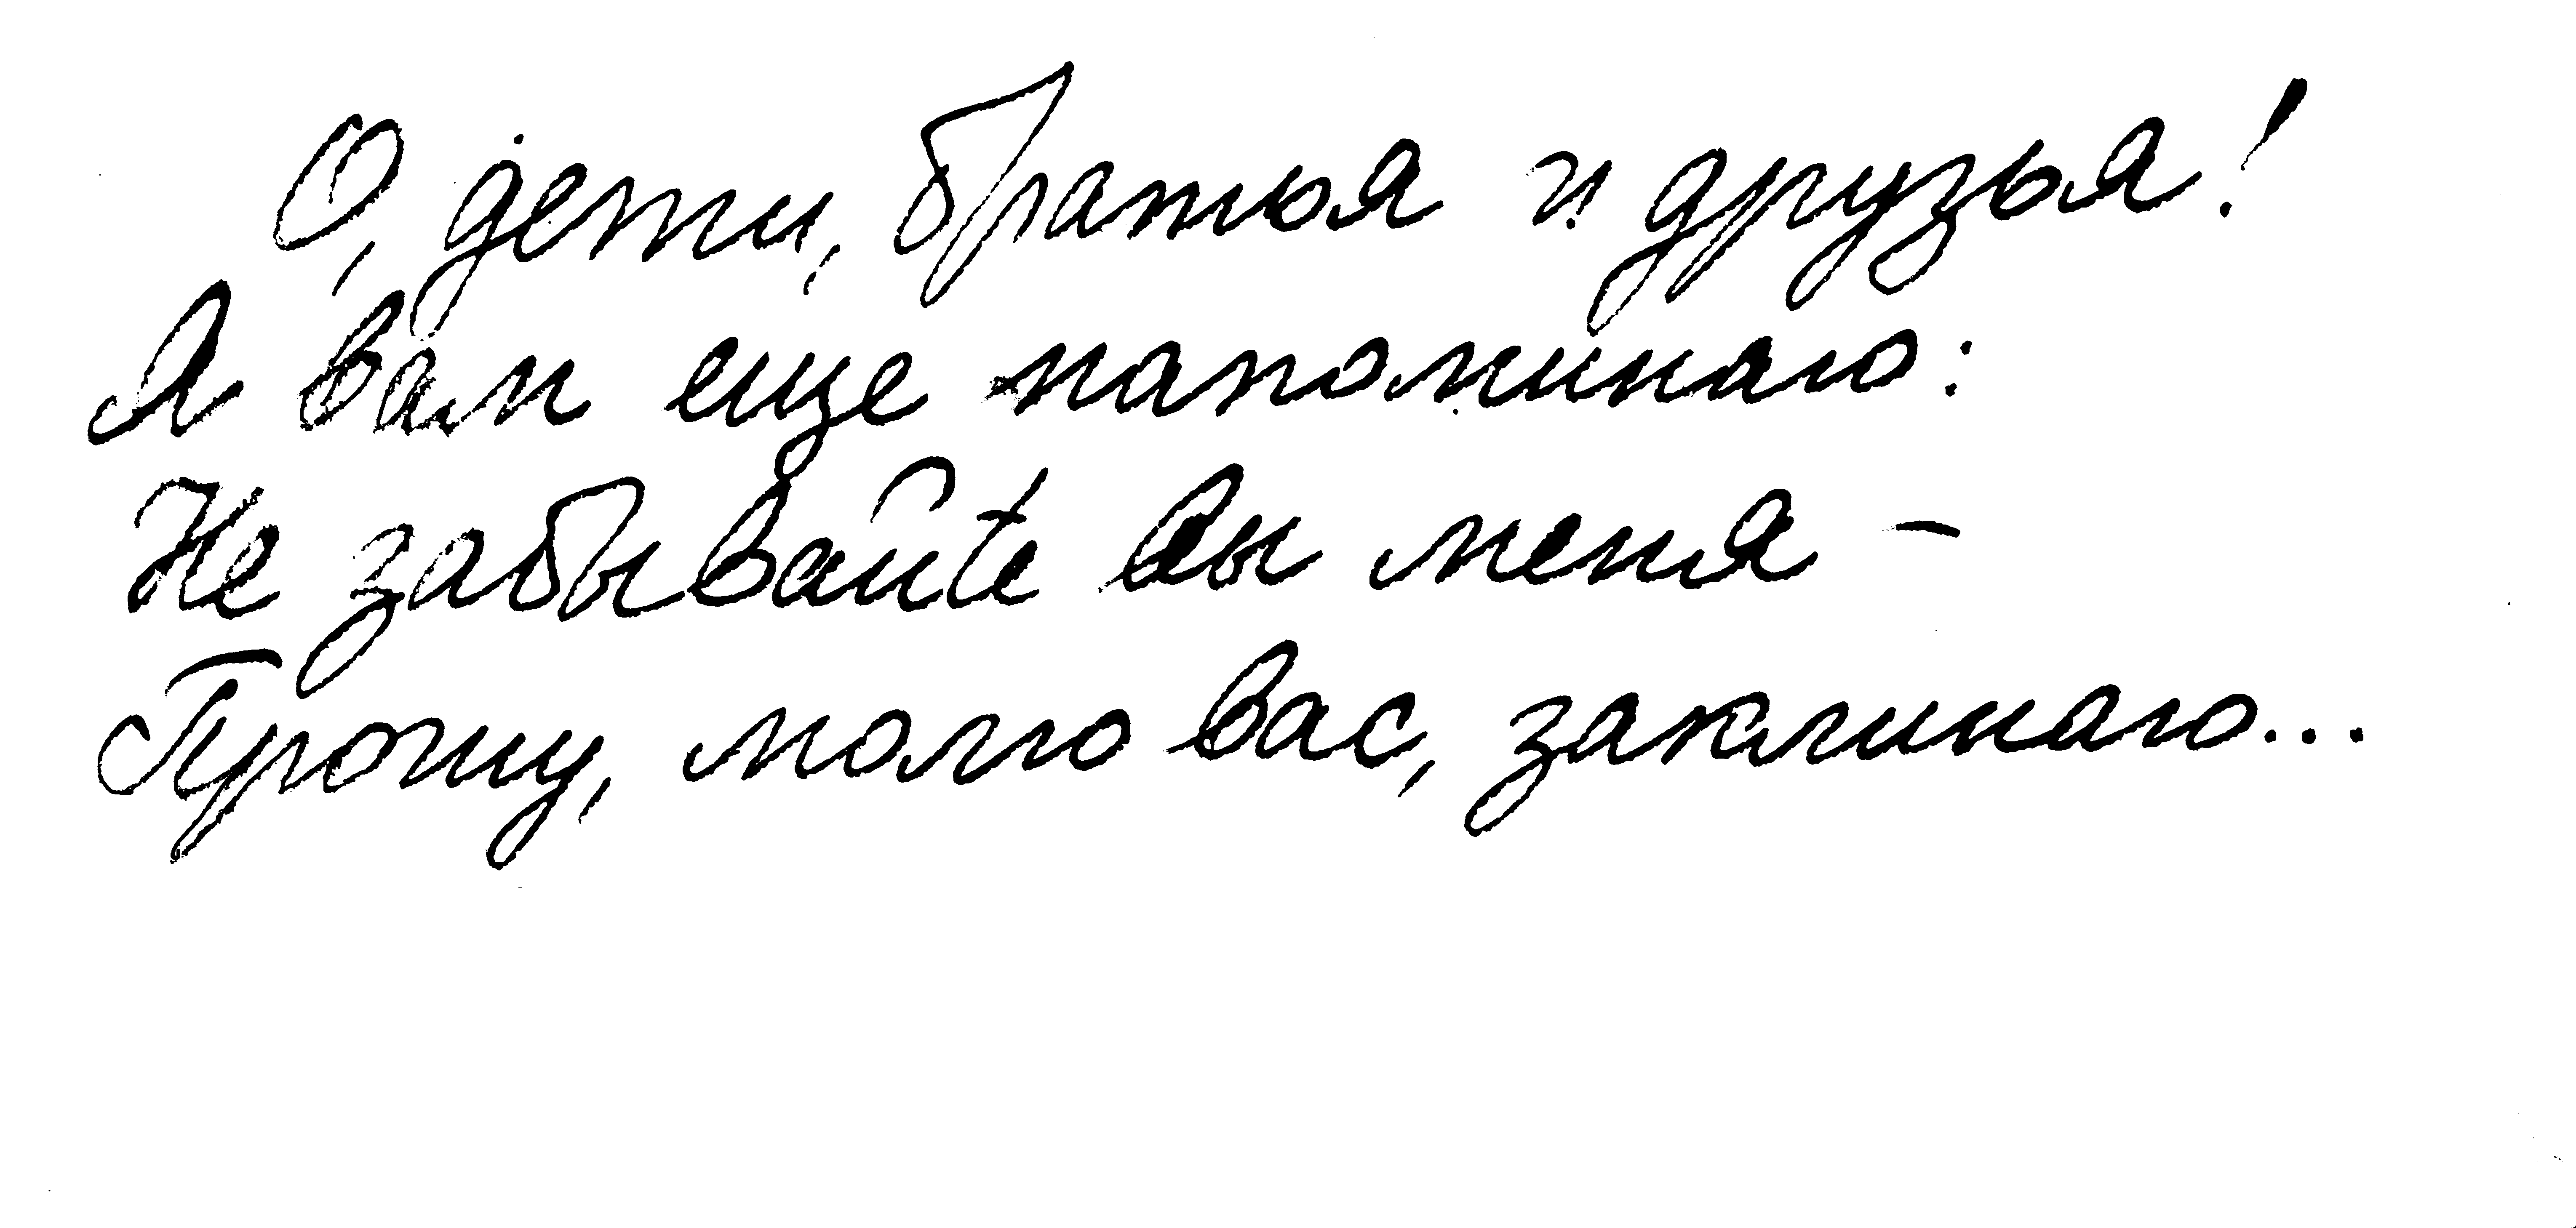 О, дети, братья и друзья!
Я вам еще напоминаю:
Не забывайте вы меня –
Прошу, молю вас, заклинаю...